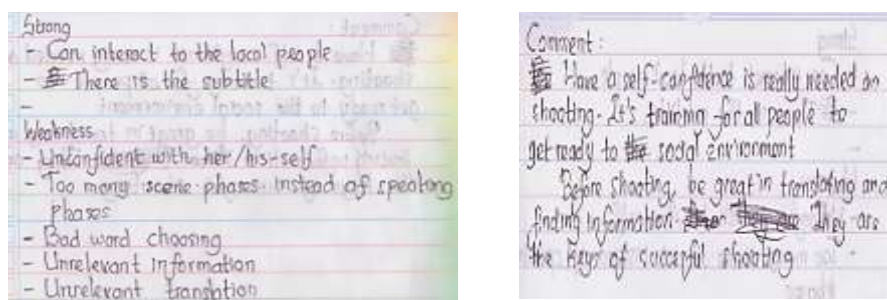 Strong
- Can interact to the local people
- There is the subtitle
-
Weakness
- Unconfident with her/his-self
- Too many scene phases instead of speaking
phases
- Bad word choosing
- Unrelevant information
- Unrelevant translation
Comment :
Have a self-confidence is really needed on
shooting. It's training for all people to
get ready to social environment
Before shooting, be great in translating and
finding information. They are
the keys of succesful shooting